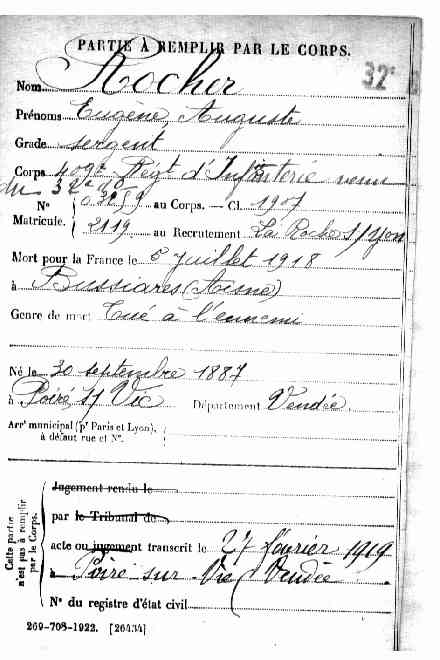 PARTIE À REMPLIR PAR LE CORPS.
32e
Nom Rocher
Prénoms Eugène Auguste
Grade sergent
Corps 409e Régt d'Infanterie venu
du 32e do
N° Matricule. { au Corps. — Cl. 1907
2119 au Recrutement La Roche s/ Yon
Mort pour la France le 5 juillet 1918
à Bussiares (Aisne)
Genre de mort Tué à l'ennemi
Né le 30 septembre 1887
à Poiré s/ Vie Département Vendée
Arrt municipal (pr Paris et Lyon), à défaut rue et N°.
Cette partie n'est pas à remplir par le Corps.
Jugement rendu le
par le Tribunal de
acte ou jugement transcrit le 27 février 1919
à Poiré sur Vie (Vendée
N° du registre d'état civil
269-708-1922. [26434]